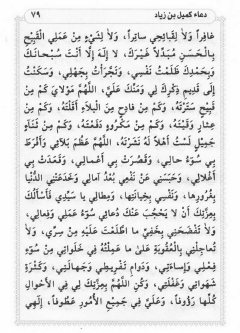 دعاء كميل بن زياد ٧٩
غافِراً وَلاٰ لِقَبائِحي ساتِراً، وَلاٰ لِشَيْءٍ مِنْ عَمَلِيَ الْقَبيحِ
بِالْحَسَنِ مُبَدِّلاً غَيْرَكَ، لاٰ إِلٰهَ إِلّاٰ أَنْتَ سُبْحانَكَ
وَبِحَمْدِكَ ظَلَمْتُ نَفْسي، وَتَجَرَّأْتُ بِجَهْلي، وَسَكَنْتُ
إِلىٰ قَديمِ ذِكْرِكَ لي وَمَنِّكَ عَلَيَّ، اللّهُمَّ مَوْلايَ كَمْ مِنْ
قَبيحٍ سَتَرْتَهُ، وَكَمْ مِنْ فادِحٍ مِنَ الْبَلاٰءِ أَقَلْتَهُ، وَكَمْ مِنْ
عِثارٍ وَقَيْتَهُ، وَكَمْ مِنْ مَكْرُوهٍ دَفَعْتَهُ، وَكَمْ مِنْ ثَناٰءٍ
جَميلٍ لَسْتُ أَهْلاً لَهُ نَشَرْتَهُ، اللّهُمَّ عَظُمَ بَلاٰئي وَأَفْرَطَ
بي سُوءُ حالي، وَقَصُرَتْ بي أَعْمالي، وَقَعَدَتْ بي
أَغْلالي، وَحَبَسَني عَنْ نَفْعي بُعْدُ آمالي، وَخَدَعَتْنِي الدُّنْيا
بِغُرُورِها، وَنَفْسي بِخِيانَتِها، وَمِطالي يا سَيِّدي فَأَسْأَلُكَ
بِعِزَّتِكَ أَنْ لاٰ يَحْجُبَ عَنْكَ دُعائي سُوءُ عَمَلي وَفِعالي،
وَلاٰ تَفْضَحْني بِخَفِيِّ مَا اطَّلَعْتَ عَلَيْهِ مِنْ سِرّي، وَلاٰ
تُعاجِلْني بِالْعُقُوبَةِ عَلىٰ ما عَمِلْتُهُ في خَلَواتي مِنْ سُوءِ
فِعْلي وَإِساءَتي، وَدَوامِ تَفْريطي وَجَهالَتي، وَكَثْرَةِ
شَهَواتي وَغَفْلَتي، وَكُنِ اللّهُمَّ بِعِزَّتِكَ لي في الأَحْوالِ
كُلِّها رَؤُوفاً، وَعَلَيَّ في جَميعِ الأُمُورِ عَطُوفاً، إِلٰهي